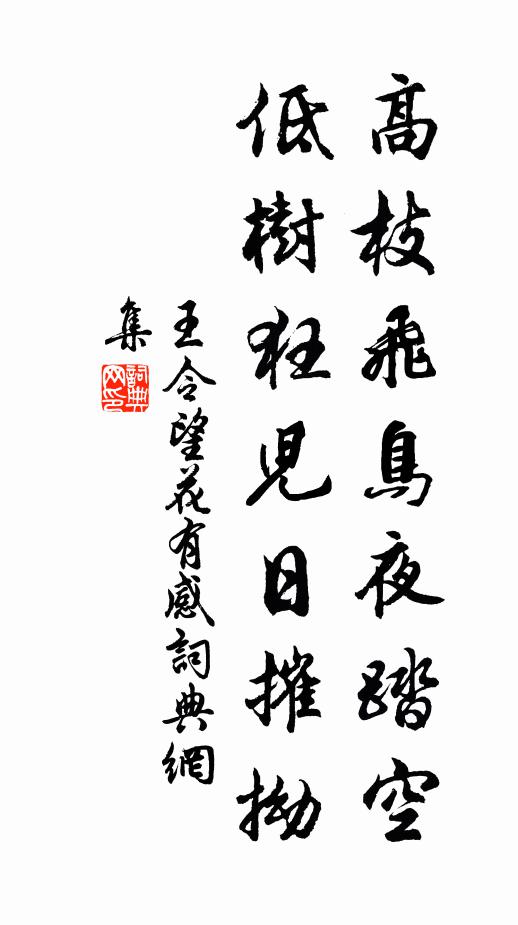 高枝飛鳥夜踏空
低樹狂児日摧拗
王令望花有感詞典網
集
詞典网印